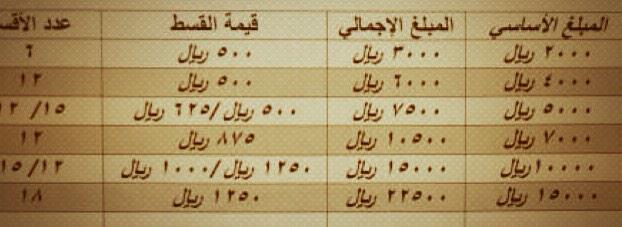 المبلغ الأساسي المبلغ الإجمالي قيمة القسط عدد الأقس
٢٠٠٠ ريال ٣٠٠٠ ريال ٥٠٠ ريال ٦
٤٠٠٠ ريال ٦٠٠٠ ريال ٥٠٠ ريال ١٢
٥٠٠٠ ريال ٧٥٠٠ ريال ٥٠٠ ريال /٦٢٥ ريال ١٥/ ١٢
٧٠٠٠ ريال ١٠٥٠٠ ريال ٨٧٥ ريال ١٢
١٠٠٠٠ ريال ١٥٠٠٠ ريال ١٢٥٠ ريال/١٠٠٠ ريال ١٥/١٢
١٥٠٠٠ ريال ٢٢٥٠٠ ريال ١٢٥٠ ريال ١٨